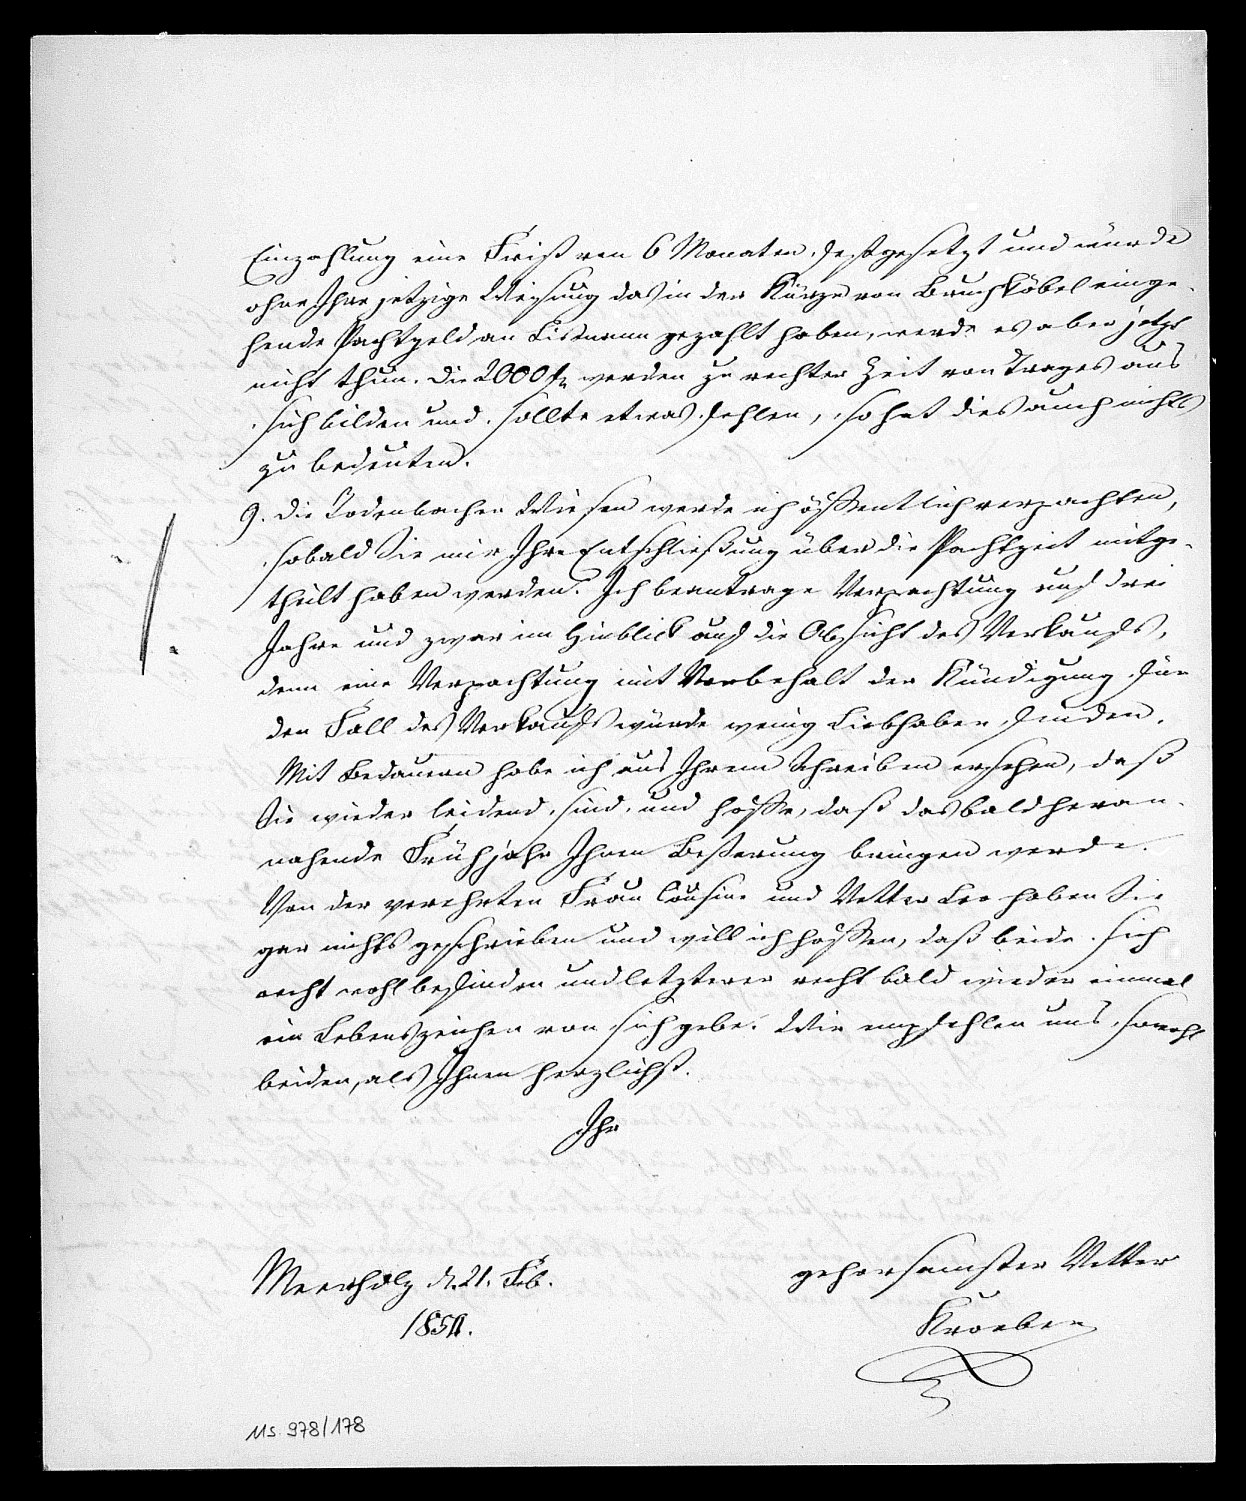 Einzahlung eine Frist von 6 Monaten festgesetzt und würde
ohne Ihre jetzige Weisung das in der Kürze von Bruchköbel einge-
hende Pachtgeld an Lismann gezahlt haben, werde es aber jetzt
nicht thun. Die 2000 fr werden zu rechter Zeit von Trages aus
sich bilden und sollte etwas fehlen, so hat dies auch nichts
zu bedeuten.
9. Die Rodenbacher Wiesen werde ich öffentlich verpachten,
sobald Sie mir Ihre Entschließung über die Pachtzeit mitge-
theilt haben werden. Ich beantrage Verpachtung auf drei
Jahre und zwar im Hinblick auf die Absicht des Verkaufs,
denn eine Verpachtung mit Vorbehalt der Kündigung für
den Fall des Verkaufs würde wenig Liebhaber finden.
Mit Bedauern habe ich aus Ihrem Schreiben ersehen, daß
Sie wieder leidend sind und hoffe, daß das bald heran-
nahende Frühjahr Ihnen Beßerung bringen werde.
Von der verehrten Frau Cousine und Vetter Leo haben Sie
gar nichts geschrieben und will ich hoffen, daß beide sich
recht wohl befinden und letzterer recht bald wieder einmal
ein Lebenszeichen von sich gebe. Wir empfehlen uns sowohl
beiden, als Ihnen herzlichst.
Ihr
gehorsamster Vetter
Kroeber
Meerholz d. 21. Feb.
1850.
Ms 978/178